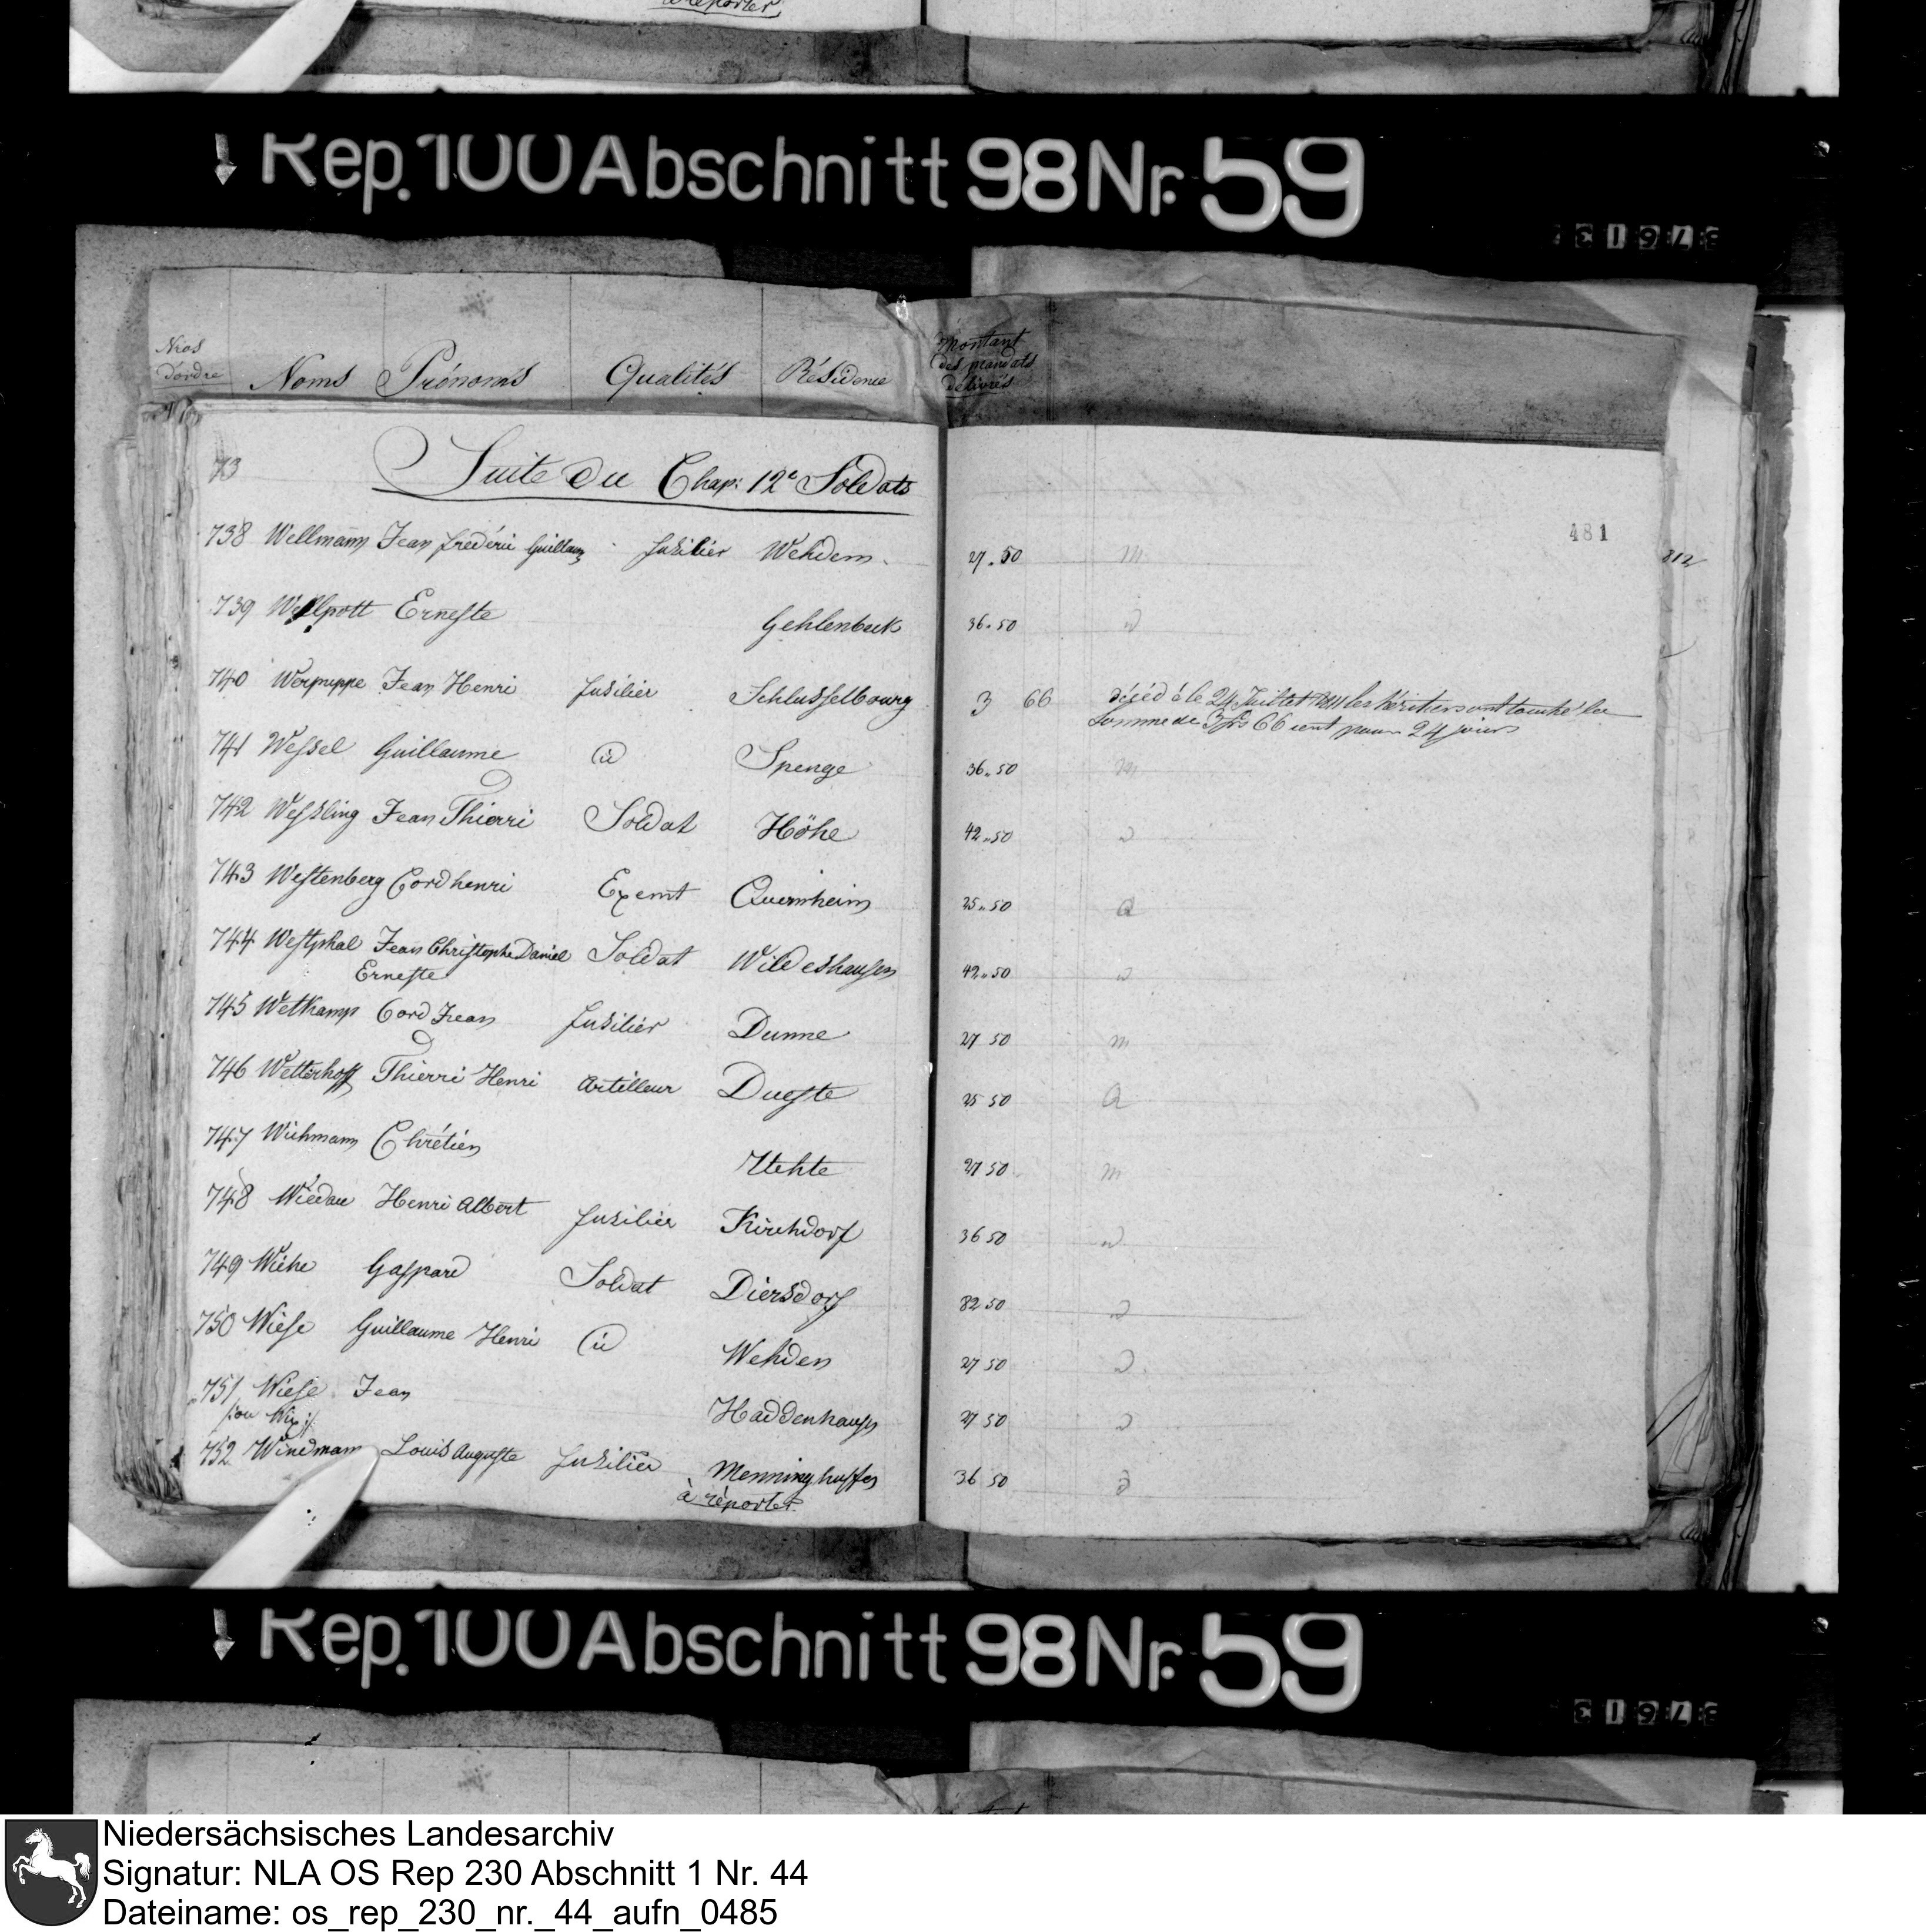 à réporter.
Rep. 100 Abschnitt 98 Nr. 59
Nros d'ordre Noms Prénoms Qualités Résidence Montant des mandats délivrés
73 Suite du Chap: 12e Soldats
481
738 Wellmann Jean frédéric Guillaume fusilier Wehdem. 27.50 m
312
739 Wellpott Erneste Gehlenbeck 36.50
740 Werpuppe Jean Henri fusilier Schlusselbourg 3 66 décédé le 24 Juillet 1811 les héritiers ont touché la
somme de 3 frs 66 cent pour 24 jours
741 Wessel Guillaume id Spenge 36.50 m
742 Wessling Jean Thierri Soldat Höhe 42.50
743 Westenberg Cord henri Exemt Quernheim 25.50 a
744 Westphal Jean Christophe Daniel Soldat Wildeshausen 42.50
Erneste
745 Wetkamp Cord Jean fusilier Dunne 27 50 m
746 Wetterhoff Thierri Henri Artilleur Dueste 25 50 a
747 Wichmann Chrétien Utehte 27 50 m
748 Wiedau Henri Albert fusilier Kirchdorf 36 50
749 Wiehe Gaspard Soldat Diersdorf 32 50
750 Wiese Guillaume Henri id Wehden 27 50
751 Wiese Jean Haddenhausen 27 50
/:ou Wix:/
752 Windmann Louis Auguste fusilier Menninghuffen 36 50
à réporter.
Rep. 100 Abschnitt 98 Nr. 59
Niedersächsisches Landesarchiv
Signatur: NLA OS Rep 230 Abschnitt 1 Nr. 44
Dateiname: os_rep_230_nr._44_aufn_0485